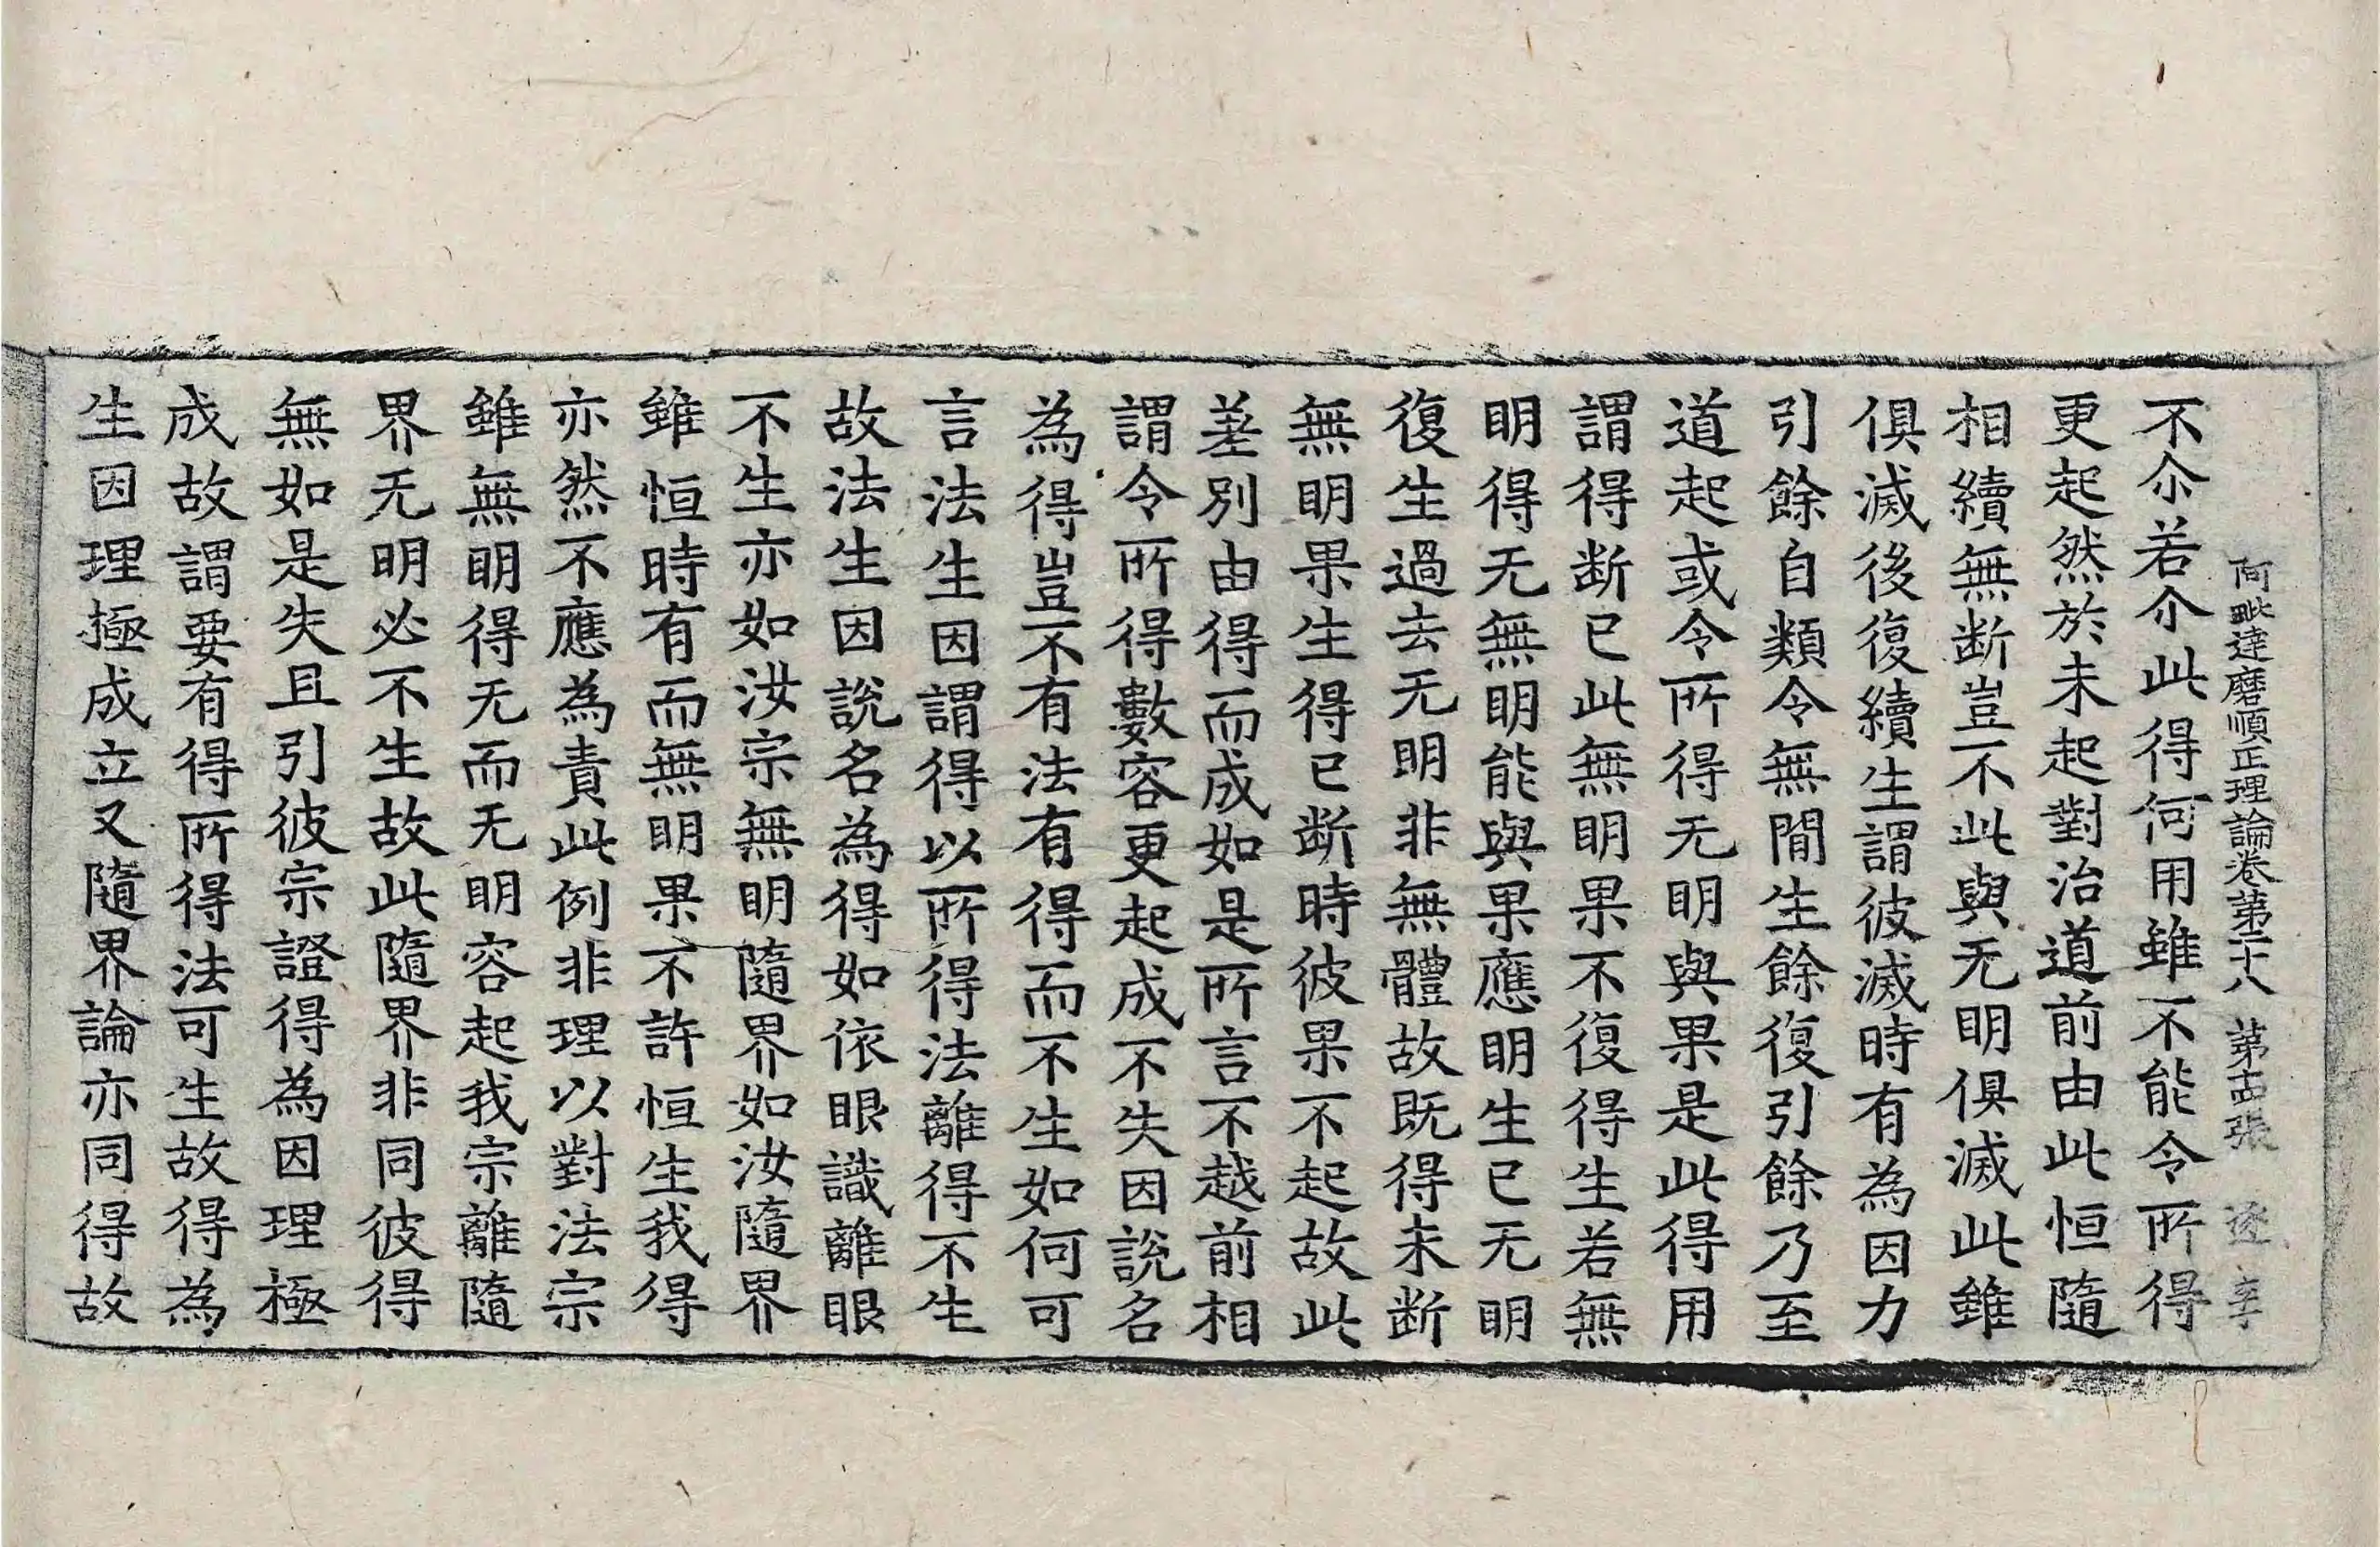 阿毗達磨順正理論卷第二十八 第十四張 逐 李
不尒若尒此得何用雖不能令所得
更起然於未起對治道前由此恒隨
相續無断豈不此與无明俱滅此雖
俱滅後復續生謂彼滅時有為因力
引餘自類令無間生餘復引餘乃至
道起或令所得无明與果是此得用
謂得断已此無明果不復得生若無
明得无無明能與果應明生已无明
復生過去无明非無體故既得未断
無明果生得已断時彼果不起故此
差別由得而成如是所言不越前相
謂令所得數容更起成不失因說名
為得豈不有法有得而不生如何可
言法生因謂得以所得法離得不生
故法生因說名為得如依眼識離眼
不生亦如汝宗無明隨界如汝隨界
雖恒時有而無明果不許恒生我得
亦然不應為責此例非理以對法宗
雖無明得无而无明容起我宗離隨
界无明必不生故此隨界非同彼得
無如是失且引彼宗證得為因理極
成故謂要有得所得法可生故得為
生因理極成立又隨界論亦同得故